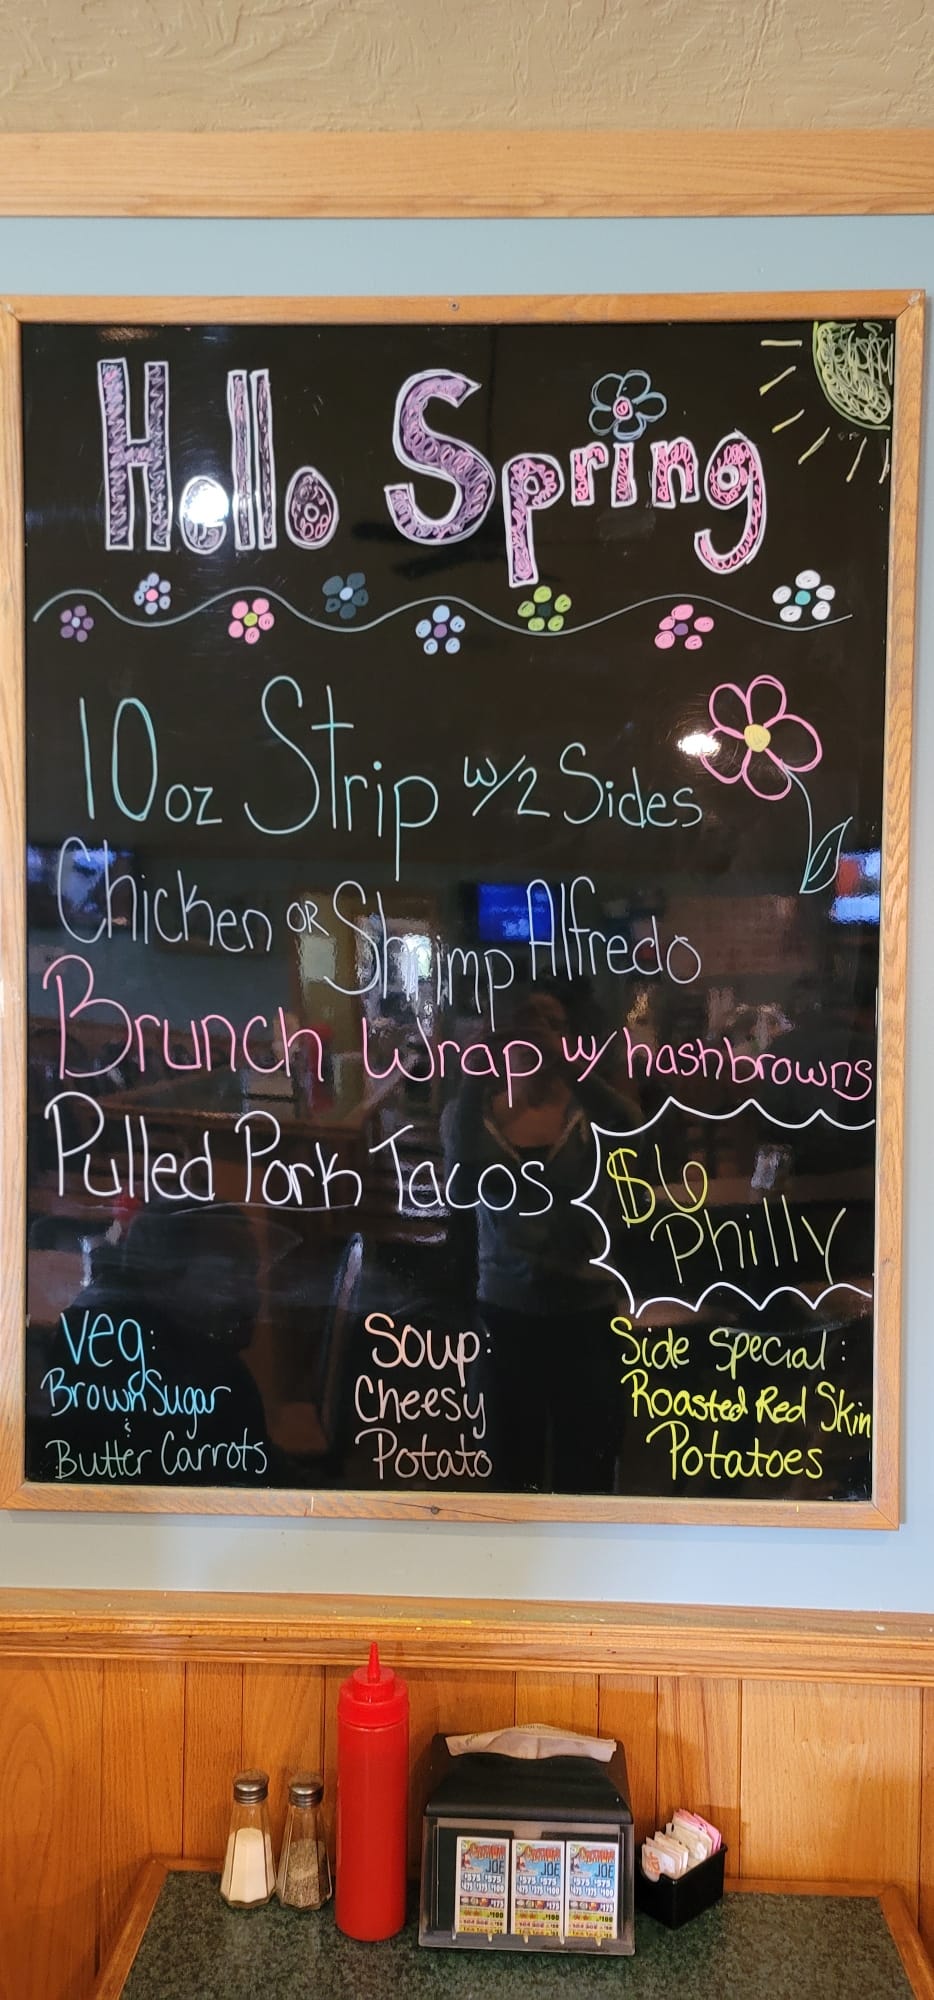 Hello Spring
10oz Strip w/2 Sides
Chicken OR Shrimp Alfredo
Brunch Wrap w/ hashbrowns
Pulled Pork Tacos
$6
Philly
Veg:
Brown Sugar
&
Butter Carrots
Soup:
Cheesy
Potato
Side Special:
Roasted Red Skin
Potatoes
JOE JOE JOE